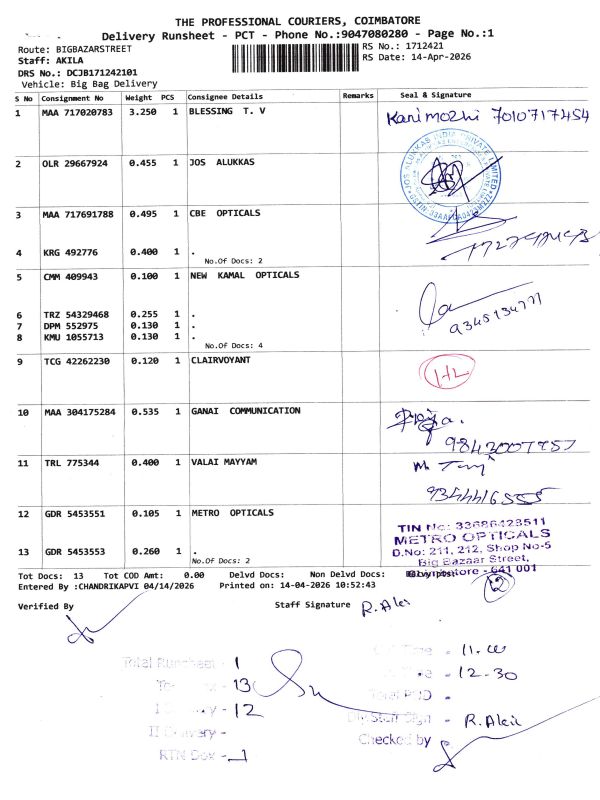 THE PROFESSIONAL COURIERS, COIMBATORE
Delivery Runsheet - PCT - Phone No.:9047080280 - Page No.:1
Route: BIGBAZARSTREET
RS No.: 1712421
Staff: AKILA
RS Date: 14-Apr-2026
DRS No.: DCJB171242101
Vehicle: Big Bag Delivery
S No Consignment No Weight PCS Consignee Details Remarks Seal & Signature
1 MAA 717020783 3.250 1 BLESSING T. V
Kanimozhi 7010717454
2 OLR 29667924 0.455 1 JOS ALUKKAS
JOS ALUKKAS INDIA PRIVATE LIMITED
3 MAA 717691788 0.495 1 CBE OPTICALS
4 KRG 492776 0.400 1 .
No.Of Docs: 2
5 CMM 409943 0.100 1 NEW KAMAL OPTICALS
6 TRZ 54329468 0.255 1 .
7 DPM 552975 0.130 1 .
8 KMU 1055713 0.130 1 .
No.Of Docs: 4
9 TCG 42262230 0.120 1 CLAIRVOYANT
10 MAA 304175284 0.535 1 GANAI COMMUNICATION
11 TRL 775344 0.400 1 VALAI MAYYAM
9344416555
12 GDR 5453551 0.105 1 METRO OPTICALS
TIN No: 33686423511
METRO OPTICALS
D.No: 211, 212, Shop No-5
Big Bazaar Street,
Coimbatore - 641 001
13 GDR 5453553 0.260 1 .
No.Of Docs: 2
Tot Docs: 13 Tot COD Amt: 0.00 Delvd Docs: Non Delvd Docs:
2
Entered By :CHANDRIKAPVI 04/14/2026 Printed on: 14-04-2026 10:52:43
Verified By
Staff Signature R.Akil
Total Runsheet - 1
- 13
- 12
II Delivery -
RTN Dox - 1
Time - 11.00
- 12-30
Total POD -
Sign - R.Akil
Checked by